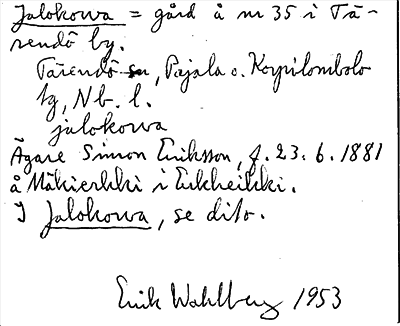 Jalokowa = gård å nr 35 i Tä-
rendö by.
Tärendö sn, Pajala o. Korpilombolo
tg, Nb. l.
jalokowa
Ägare Simon Eriksson, f. 23.6.1881
å Mäkierkki i Erkheikki.
I Jalokowa, se dito.
Erik Wahlberg 1953